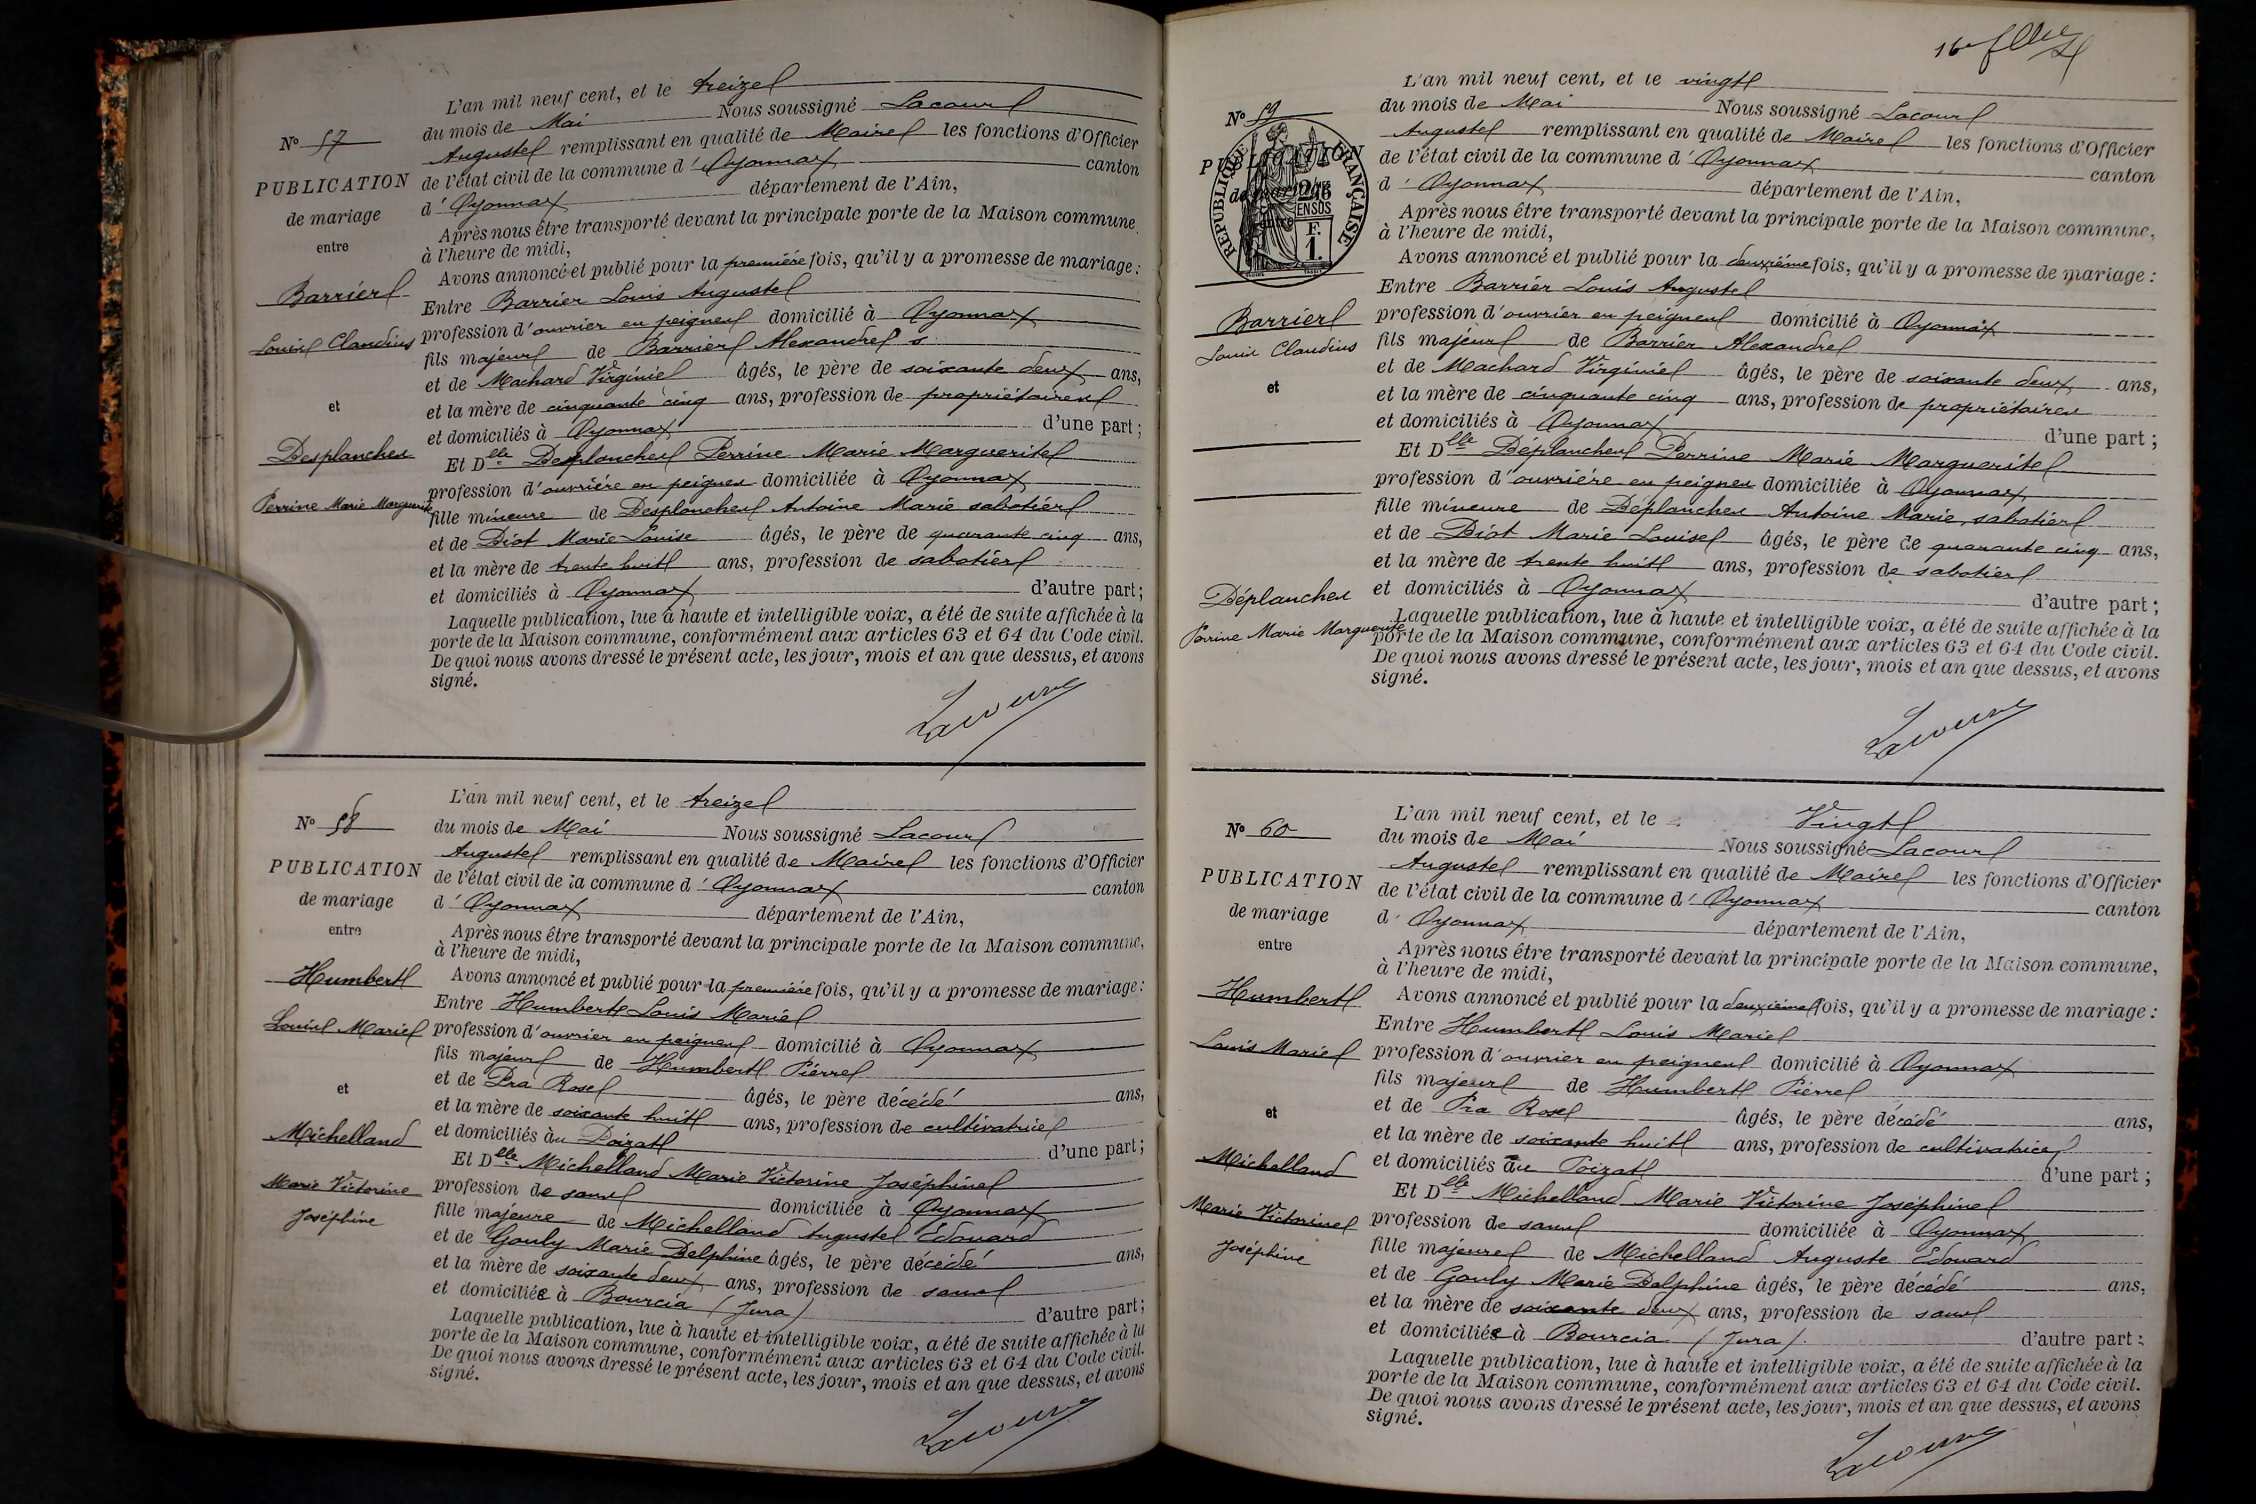 L'an mil neuf cent, et le treize
du mois de Mai Nous soussigné Lacour
Nº 57
Auguste remplissant en qualité de Maire les fonctions d'Officier
PUBLICATION
de l'état civil de la commune d'Oyonnax canton
d'Oyonnax département de l'Ain,
de mariage
Après nous être transporté devant la principale porte de la Maison commune,
entre
à l'heure de midi,
Avons annoncé et publié pour la première fois, qu'il y a promesse de mariage :
Barrier
Entre Barrier Louis Auguste
Louis Claudius
profession d'ouvrier en peignes domicilié à Oyonnax
fils majeur de Barrier Alexandre
et de Machard Virginie âgés, le père de soixante deux ans,
et
et la mère de cinquante cinq ans, profession de propriétaires
et domiciliés à Oyonnax d'une part ;
Desplanches
Et Dlle Desplanches Perrine Marie Marguerite
profession d'ouvrière en peignes domiciliée à Oyonnax
Perrine Marie Marguerite
fille mineure de Desplanches Antoine Marie sabotier
et de Diot Marie Louise âgés, le père de quarante cinq ans,
et la mère de trente huit ans, profession de sabotier
et domiciliés à Oyonnax d'autre part ;
Laquelle publication, lue à haute et intelligible voix, a été de suite affichée à la
porte de la Maison commune, conformément aux articles 63 et 64 du Code civil.
De quoi nous avons dressé le présent acte, les jour, mois et an que dessus, et avons
signé.
Lacour
L'an mil neuf cent, et le treize
Nº 58
du mois de Mai Nous soussigné Lacour
Auguste remplissant en qualité de Maire les fonctions d'Officier
PUBLICATION
de l'état civil de la commune d'Oyonnax canton
de mariage
d'Oyonnax département de l'Ain,
entre
Après nous être transporté devant la principale porte de la Maison commune,
à l'heure de midi,
Humbert
Avons annoncé et publié pour la première fois, qu'il y a promesse de mariage :
Entre Humbert Louis Marie
Louis Marie
profession d'ouvrier en peignes domicilié à Oyonnax
fils majeur de Humbert Pierre
et
et de Pra Rose âgés, le père décédé ans,
et la mère de soixante huit ans, profession de cultivatrice
Michelland
et domiciliés au Poizat d'une part ;
Et Dlle Michelland Marie Victorine Joséphine
Marie Victorine
profession de sans domiciliée à Oyonnax
Joséphine
fille majeure de Michelland Auguste Edouard
et de Gouly Marie Delphine âgés, le père décédé ans,
et la mère de soixante deux ans, profession de sans
et domiciliée à Bourcia (Jura) d'autre part ;
Laquelle publication, lue à haute et intelligible voix, a été de suite affichée à la
porte de la Maison commune, conformément aux articles 63 et 64 du Code civil.
De quoi nous avons dressé le présent acte, les jour, mois et an que dessus, et avons
signé.
Lacour
16e
L'an mil neuf cent, et le vingt
Nº 59
du mois de Mai Nous soussigné Lacour
Auguste remplissant en qualité de Maire les fonctions d'Officier
PUBLICATION
REPUBLIQUE FRANÇAISE
de mariage
2/10
EN SUS
F.
1.
entre
de l'état civil de la commune d'Oyonnax canton
d'Oyonnax département de l'Ain,
Après nous être transporté devant la principale porte de la Maison commune,
à l'heure de midi,
Avons annoncé et publié pour la deuxième fois, qu'il y a promesse de mariage :
Entre Barrier Louis Auguste
Barrier
profession d'ouvrier en peignes domicilié à Oyonnax
Louis Claudius
fils majeur de Barrier Alexandre
et de Machard Virginie âgés, le père de soixante deux ans,
et
et la mère de cinquante cinq ans, profession de propriétaires
et domiciliés à Oyonnax d'une part ;
Et Dlle Déplanches Perrine Marie Marguerite
profession d'ouvrière en peignes domiciliée à Oyonnax
fille mineure de Déplanches Antoine Marie, sabotier
et de Diot Marie Louise âgés, le père de quarante cinq ans,
et la mère de trente huit ans, profession de sabotier
Déplanches
et domiciliés à Oyonnax d'autre part ;
Perrine Marie Marguerite
Laquelle publication, lue à haute et intelligible voix, a été de suite affichée à la
porte de la Maison commune, conformément aux articles 63 et 64 du Code civil.
De quoi nous avons dressé le présent acte, les jour, mois et an que dessus, et avons
signé.
Lacour
L'an mil neuf cent, et le Vingt
Nº 60
du mois de Mai Nous soussigné Lacour
Auguste remplissant en qualité de Maire les fonctions d'Officier
PUBLICATION
de l'état civil de la commune d'Oyonnax canton
de mariage
d'Oyonnax département de l'Ain,
entre
Après nous être transporté devant la principale porte de la Maison commune,
à l'heure de midi,
Humbert
Avons annoncé et publié pour la deuxième fois, qu'il y a promesse de mariage :
Entre Humbert Louis Marie
Louis Marie
profession d'ouvrier en peignes domicilié à Oyonnax
fils majeur de Humbert Pierre
et
et de Pra Rose âgés, le père décédé ans,
et la mère de soixante huit ans, profession de cultivatrice
Michelland
et domiciliés au Poizat d'une part ;
Et Dlle Michelland Marie Victorine Joséphine
Marie Victorine
profession de sans domiciliée à Oyonnax
Joséphine
fille majeure de Michelland Auguste Edouard
et de Gouly Marie Delphine âgés, le père décédé ans,
et la mère de soixante deux ans, profession de sans
et domiciliée à Bourcia (Jura) d'autre part ;
Laquelle publication, lue à haute et intelligible voix, a été de suite affichée à la
porte de la Maison commune, conformément aux articles 63 et 64 du Code civil.
De quoi nous avons dressé le présent acte, les jour, mois et an que dessus, et avons
signé.
Lacour